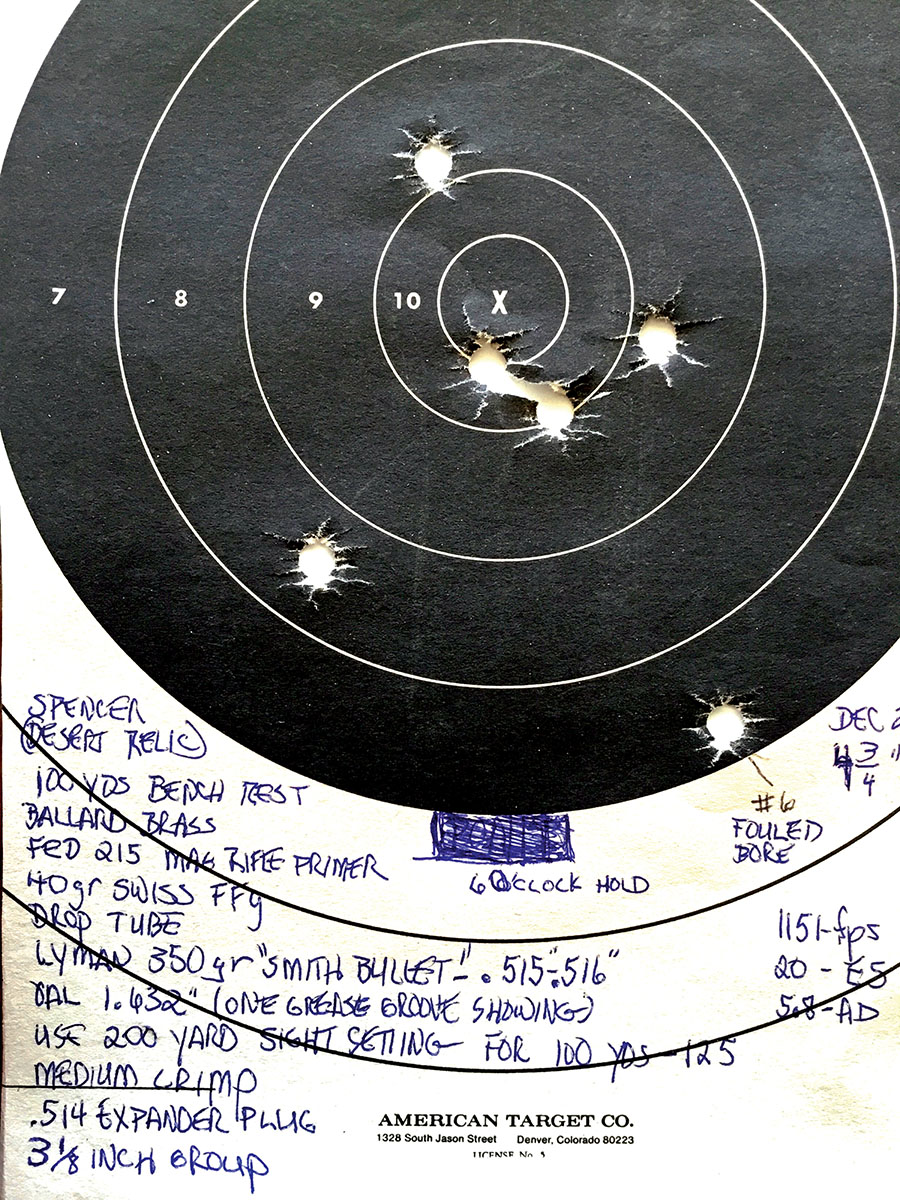 7 8 9 10 X
SPENCER
(DESERT RELIC)
100 YDS BENCH REST
BALLARD BRASS
FED 215 MAG RIFLE PRIMER
40gr SWISS FFg
DROP TUBE
LYMAN 350gr "SMITH BULLET" - .515"-.516"
OAL 1.632" (ONE GREASE GROOVE SHOWING)
USE 200 YARD SIGHT SETTING FOR 100 YDS - 125
MEDIUM CRIMP
.514 EXPANDER PLUG
3 1/8 INCH GROUP
6 O'CLOCK HOLD
DEC
4 3/4"
#6
FOULED
BORE
1151-fps
20-ES
5.8-AD
AMERICAN TARGET CO.
1328 South Jason Street Denver, Colorado 80223
LICENSE No. 5